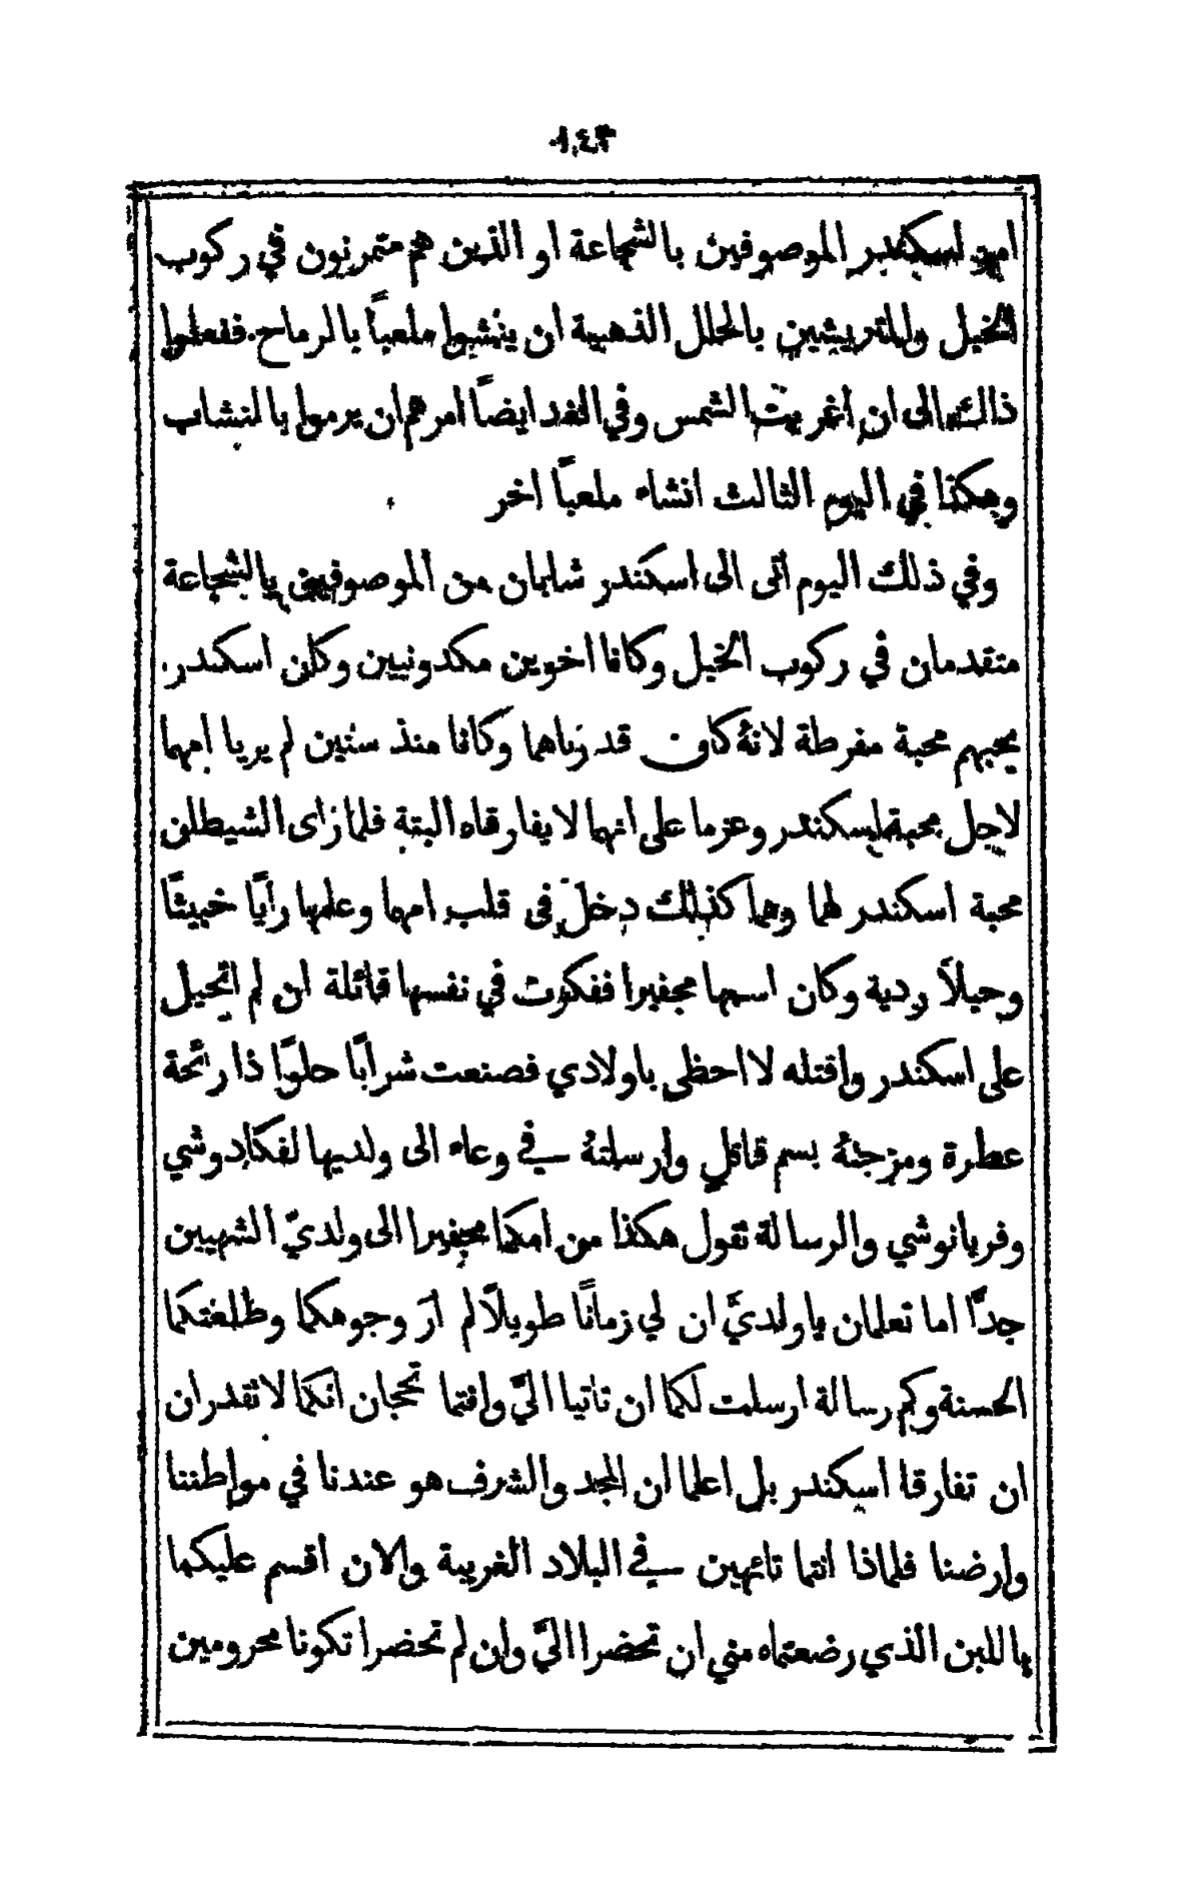 ١٤٣
امر اسكندر الموصوفين بالشجاعة او الذين هم متمرنون في ركوب
الخيل والمتريشين بالحلل الذهبية ان ينشبوا ملعباً بالرماح. ففعلوا
ذلك الى ان اغربت الشمس وفي الغد ايضاً امرهم ان يرموا بالنشاب
وهكذا في اليوم الثالث انشاء ملعباً اخر
وفي ذلك اليوم اتى الى اسكندر شابان من الموصوفين بالشجاعة
متقدمان في ركوب الخيل وكانا اخوين مكدونيين وكان اسكندر
يحبهم محبة مفرطة لانهُ كان قد رباهما وكانا منذ سنين لم يريا امهما
لاجل محبة اسكندر وعزما على انهما لا يفارقاه البتة فلما راى الشيطان
محبة اسكندر لهما وهما كذلك دخل في قلب امهما وعلمها رأيًا خبيثًا
وحيلاً ردية وكان اسمها مجفيرا ففكرت في نفسها قائلة ان لم اتحيل
على اسكندر واقتله لا احظى باولادي فصنعت شرابًا حلوًا ذا رائحة
عطرة ومزجتهُ بسم قاتل وارسلتهُ في وعاء الى ولديها لفكادوشي
وفريانوشي والرسالة تقول هكذا من امكما مجفيرا الى ولديّ الشهيين
جدًّا اما تعلمان يا ولديَّ ان لي زمانًا طويلاً لم ارَ وجوهكما وطلعتكما
الحسنة وكم رسالة ارسلت لكما ان تاتيا اليَّ وانتما تحجان انكما لا تقدران
ان تفارقا اسكندر بل اعلما ان المجد والشرف هو عندنا في مواطننا
وارضنا فلماذا انتما تائهين في البلاد الغريبة والان اقسم عليكما
باللبن الذي رضعتماه مني ان تحضرا اليَّ وان لم تحضرا تكونا محرومين